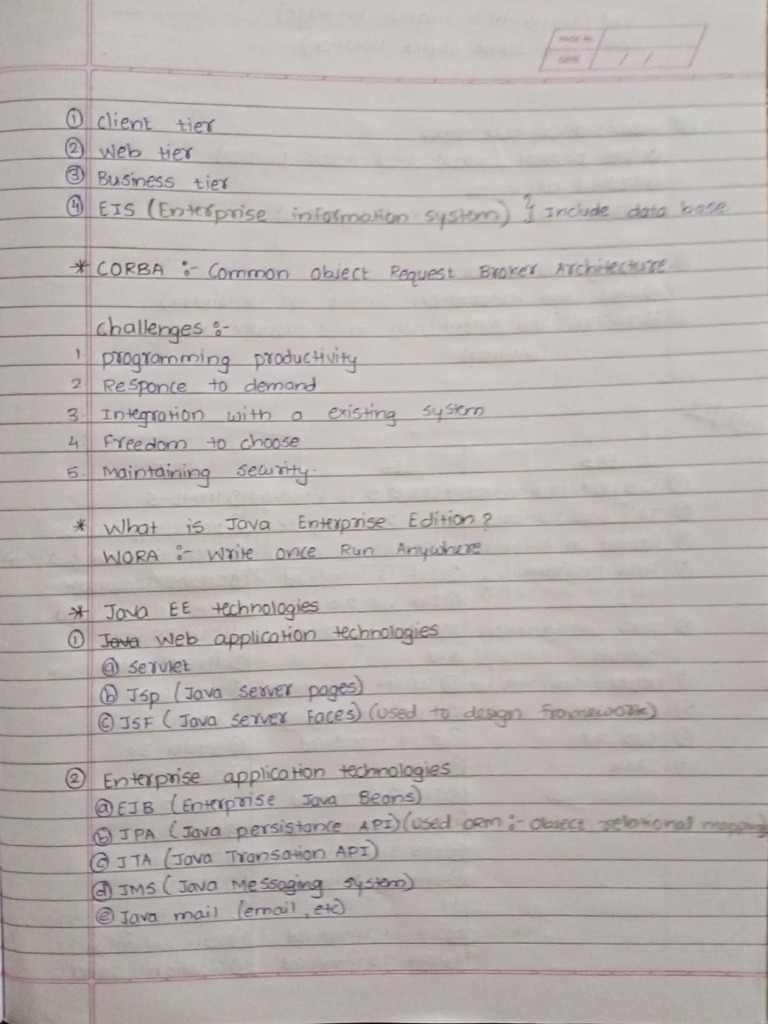 PAGE NO.
DATE / /
① client tier
② Web tier
③ Business tier
④ EIS (Enterprise information system) } Include data base
* CORBA :- Common Object Request Broker Architecture
Challenges :-
1 programming productivity
2 Responce to demand
3 Integration with a existing system
4 Freedom to choose
5. Maintaining security.
* What is Java Enterprise Edition?
WORA :- Write once Run Anywhere
* Java EE technologies
① Java Web application technologies
ⓐ servlet
ⓑ Jsp (Java server pages)
ⓒ JSF (Java server Faces) (used to design framework)
② Enterprise application technologies
ⓐ EJB (Enterprise Java Beans)
ⓑ JPA (Java persistance API) (used ORM :- Object relational mapping)
ⓒ JTA (Java Transation API)
ⓓ JMS (Java Messaging system)
ⓔ Java mail (email, etc).